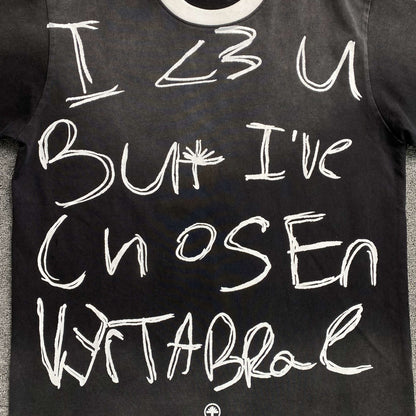 I <3 U
But I've
ChOSEn